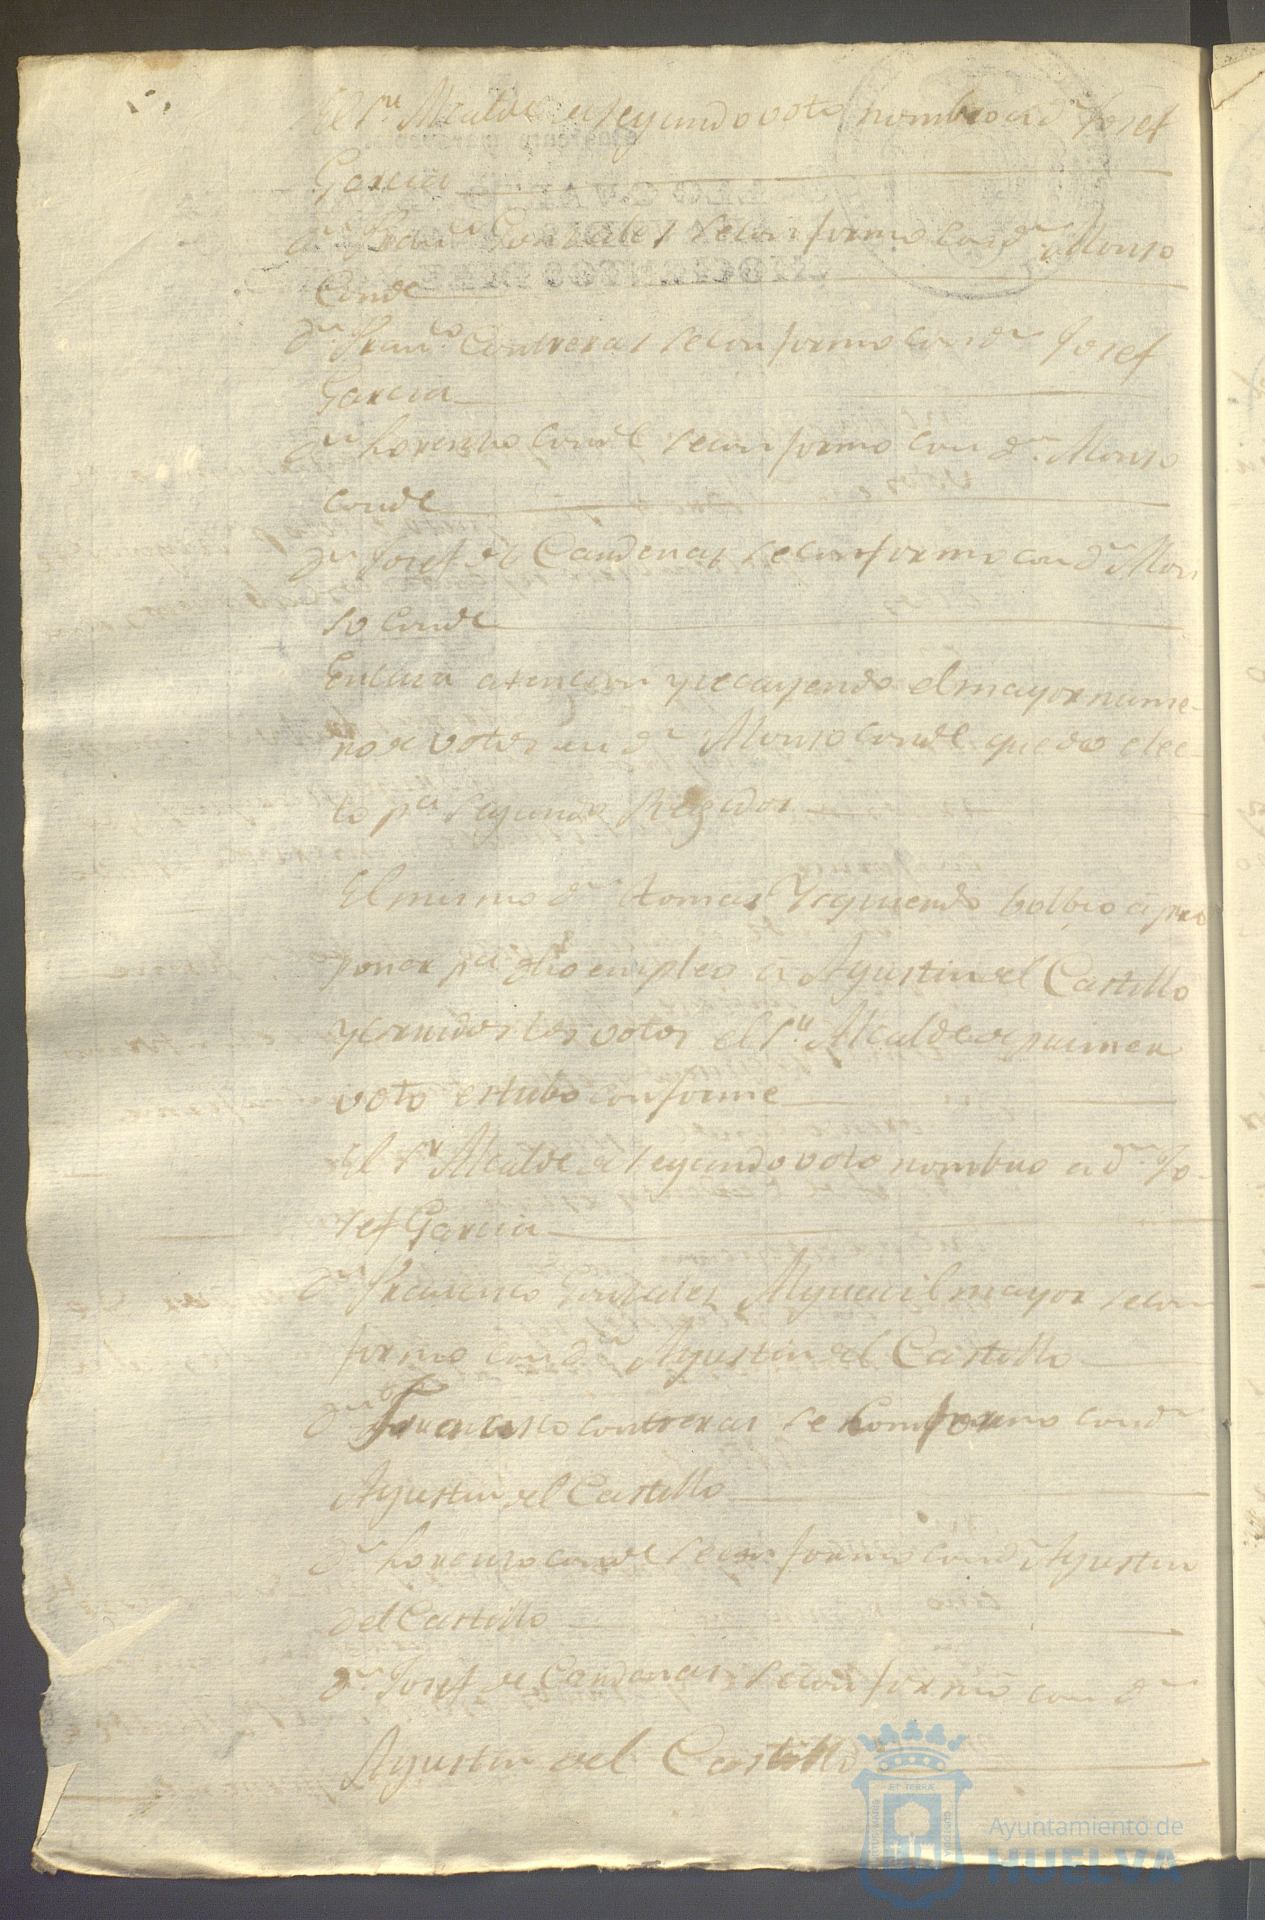 El Sr. Alcalde de segundo voto nombro a dn Josef
Garcia
dn Franco Gonzales se conformo con dn Alonso
Conde
dn Franco Contreras se conformo con dn Josef
Garcia
dn Lorenzo Conde se conformo con dn Alonso
Conde
dn Josef de Candenas se conformo con dn Alon
so Conde
En cuia atencion y recayendo el mayor nume-
ro de votos en dn Alonso Conde quedo elec-
to pa segundo Regidor
El mismo dn tomas Yzquierdo bolbio a pro
poner pa dho empleo a Agustin del Castillo
y corridos los votos el Sr. Alcalde de primer
voto estubo conforme
El Sr Alcalde de segundo voto nombro a dn Jo-
sef Garcia
dn Francisco Gonzales Alguacil mayor se con
formo con dn Agustin del Castillo
dn Francisco contreras se conformo con dn
Agustin del Castillo
dn Lorenzo conde se conformo con dn Agustin
del Castillo
dn Josef de Candenas se conformo con dn
Agustin del Castillo
ET TERRAE
Ayuntamiento de
HUELVA